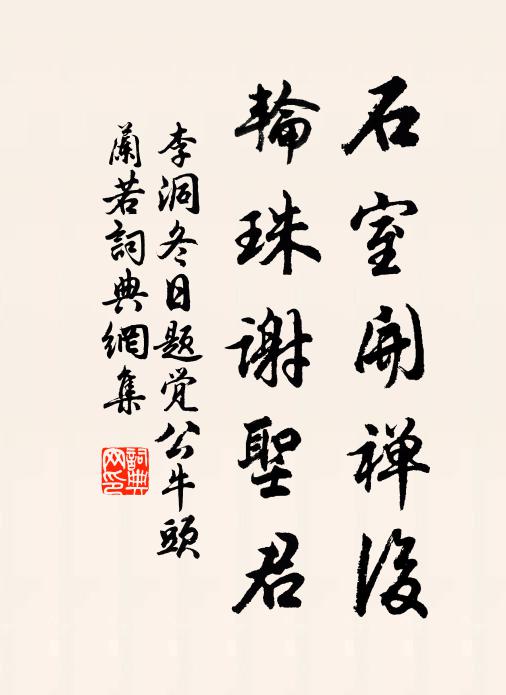 石室開禅後
輪珠謝聖君
李洞冬日題觉公牛頭
蘭若詞典網集
詞典网印